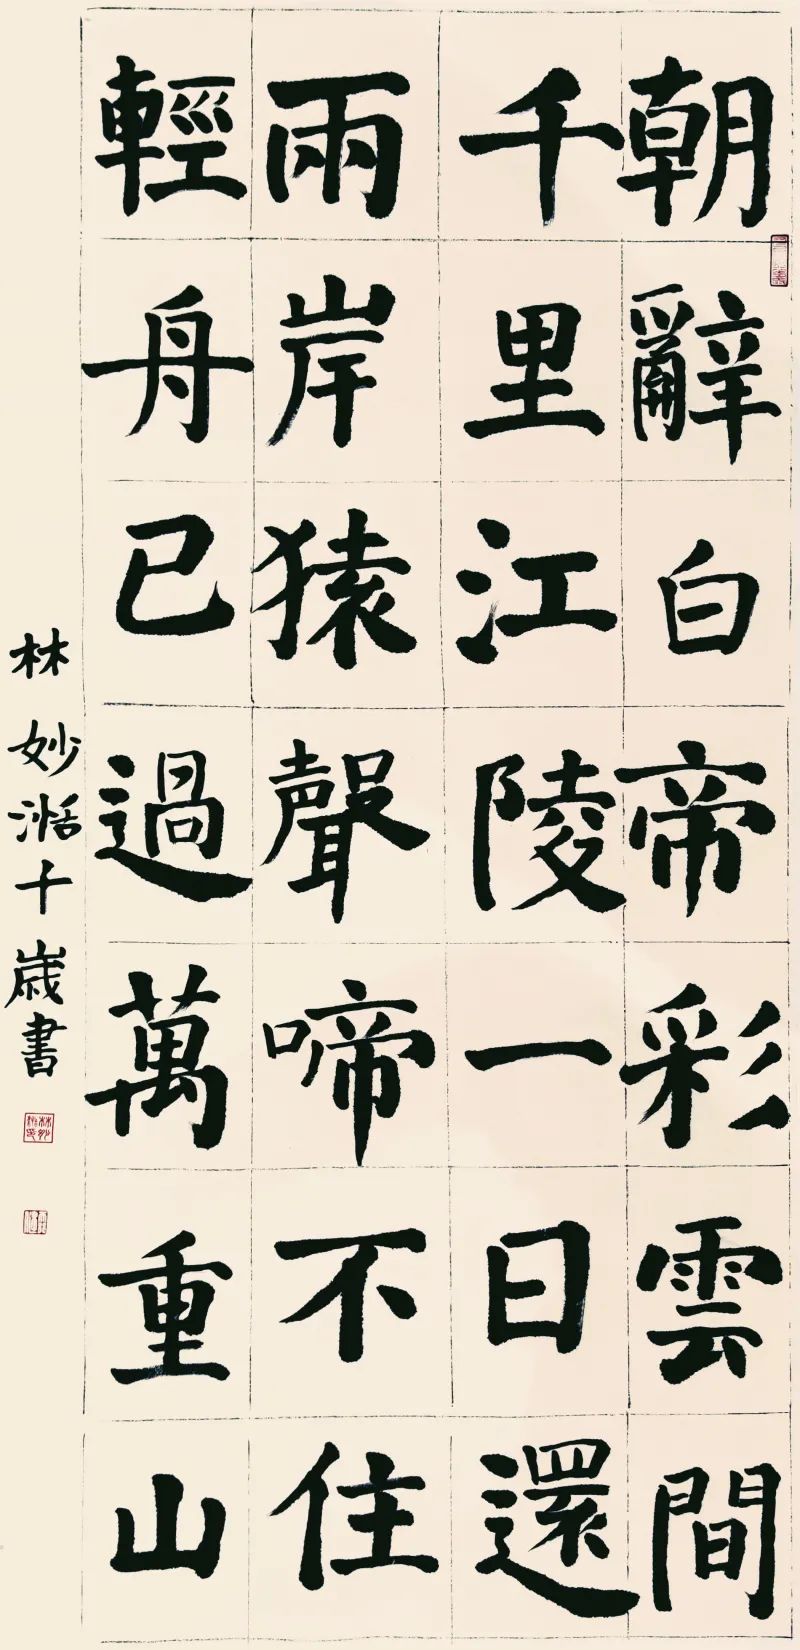 朝辭白帝彩雲間
千里江陵一日還
兩岸猿聲啼不住
輕舟已過萬重山
林妙湉十歲書